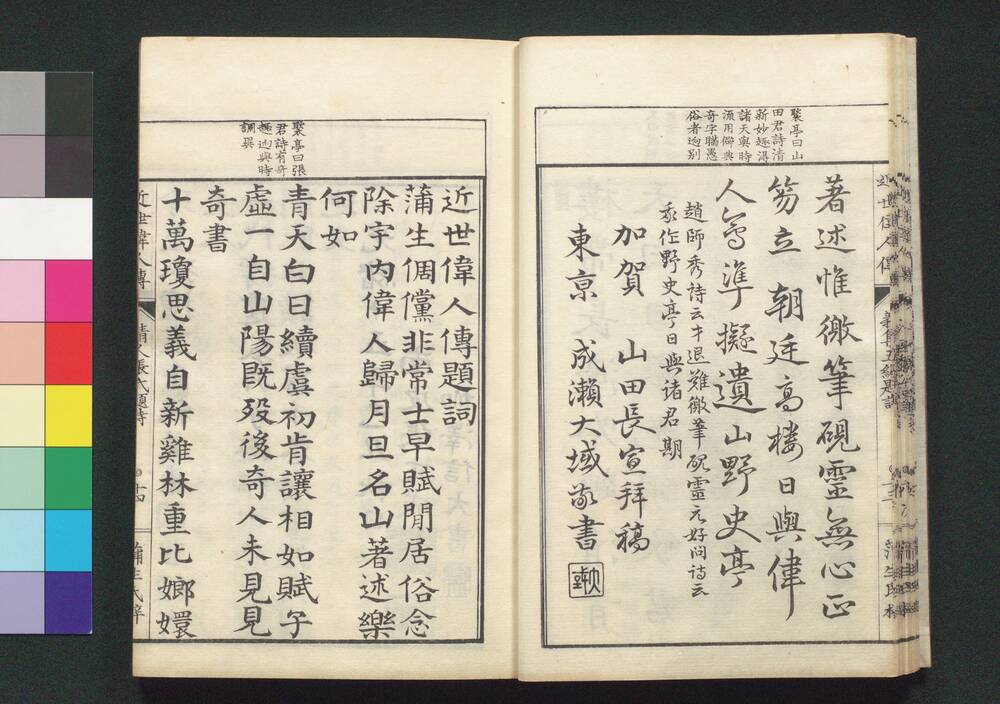 裳亭曰山
田君詩清
新妙極得
諸天與時
流用僻典
奇字瞞愚
俗者逈別
著述惟徵筆硯靈無心正
笏立 朝廷高樓日與偉
人為準擬遺山野史亭
趙師秀詩云才退難徵筆硯靈元好问詩云
我作野史亭日與諸君期
加賀 山田長宣拜稿
東京 成瀨大域敬書
裳亭曰張
君詩有奇
趣迥與時
調異
近世偉人傳題詞
蒲生倜儻非常士早賦閒居俗念
除宇內偉人歸月旦名山著述樂
何如
青天白日續虞初肯讓相如賦子
虛一自山陽既歿後奇人未見見
奇書
十萬瓊思義自新雞林重比嫏嬛
近世偉人傳
清人張氏題詩
十四
蒲生氏梓